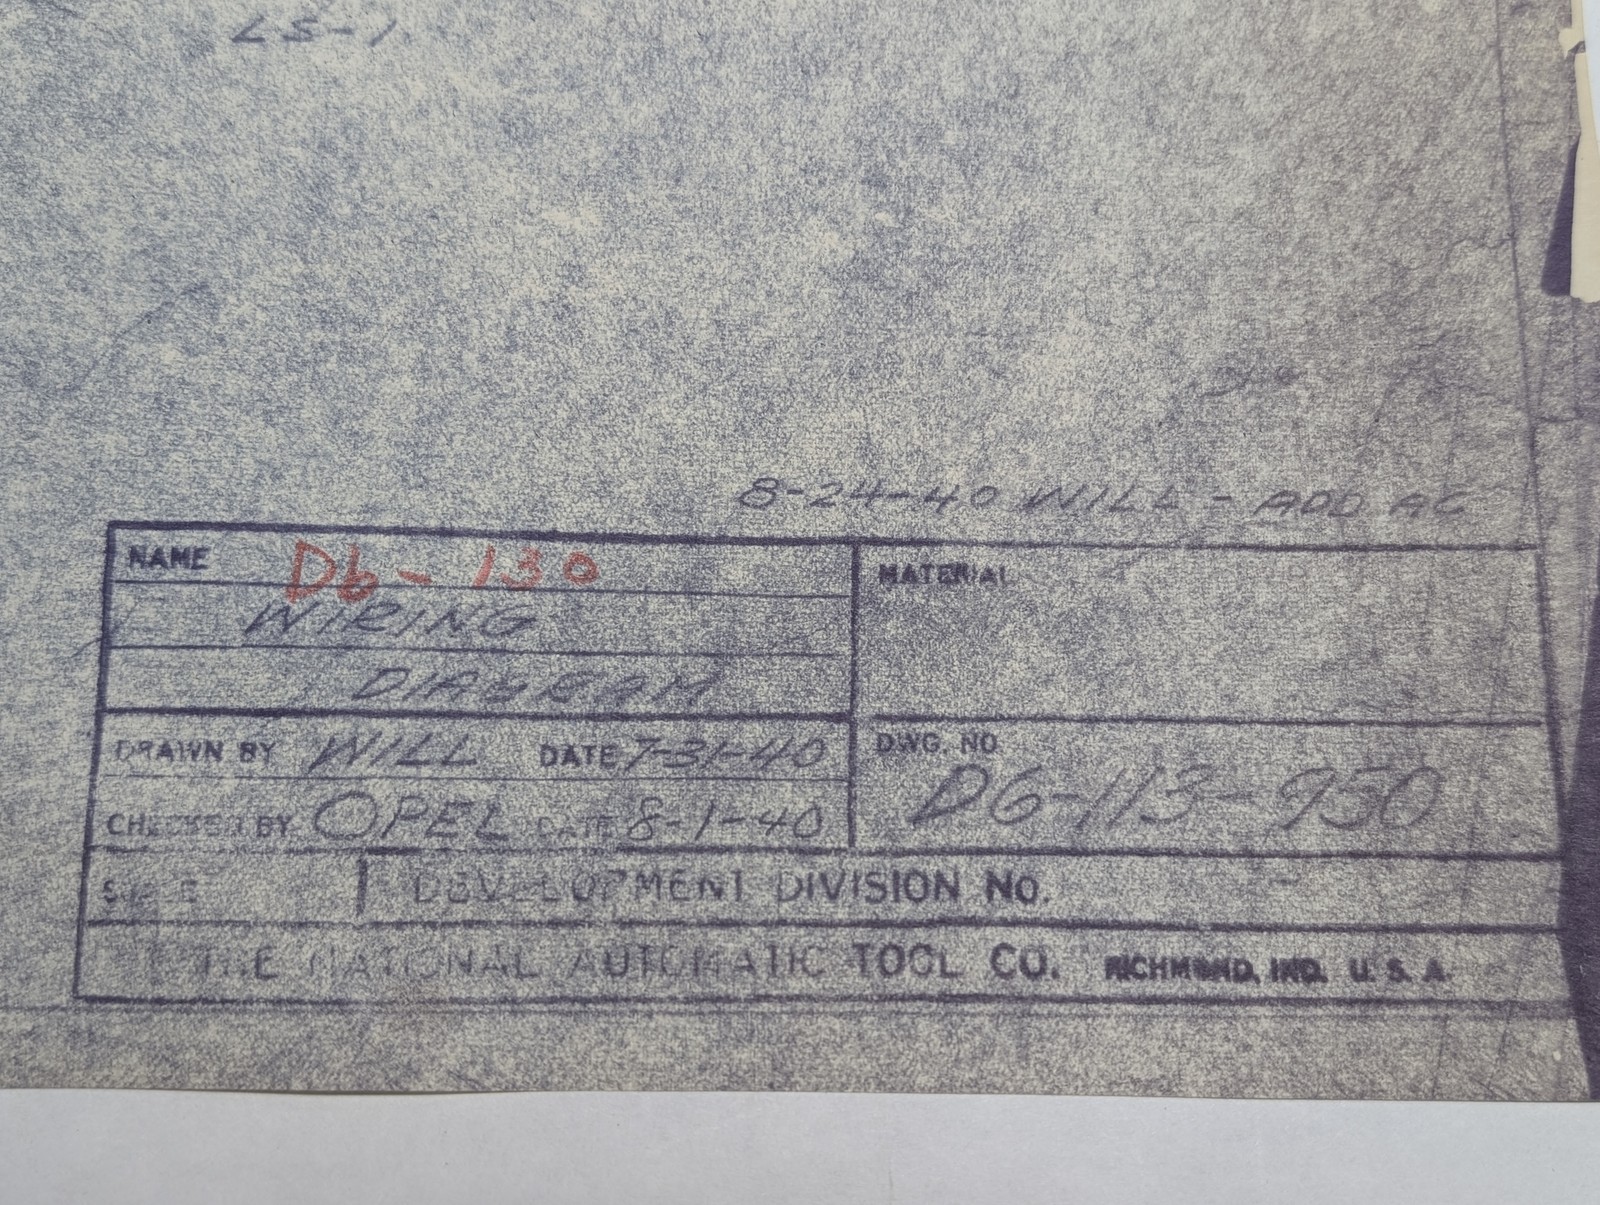 LS-1
8-24-40 WILL - ADD AC
NAME Db-130
WIRING
DIAGRAM
MATERIAL
DRAWN BY WILL DATE 7-31-40
CHECKED BY OPEL DATE 8-1-40
DWG. NO
D6-113-950
SCALE DEVELOPMENT DIVISION NO.
THE NATIONAL AUTOMATIC TOOL CO. RICHMOND, IND. U. S. A.